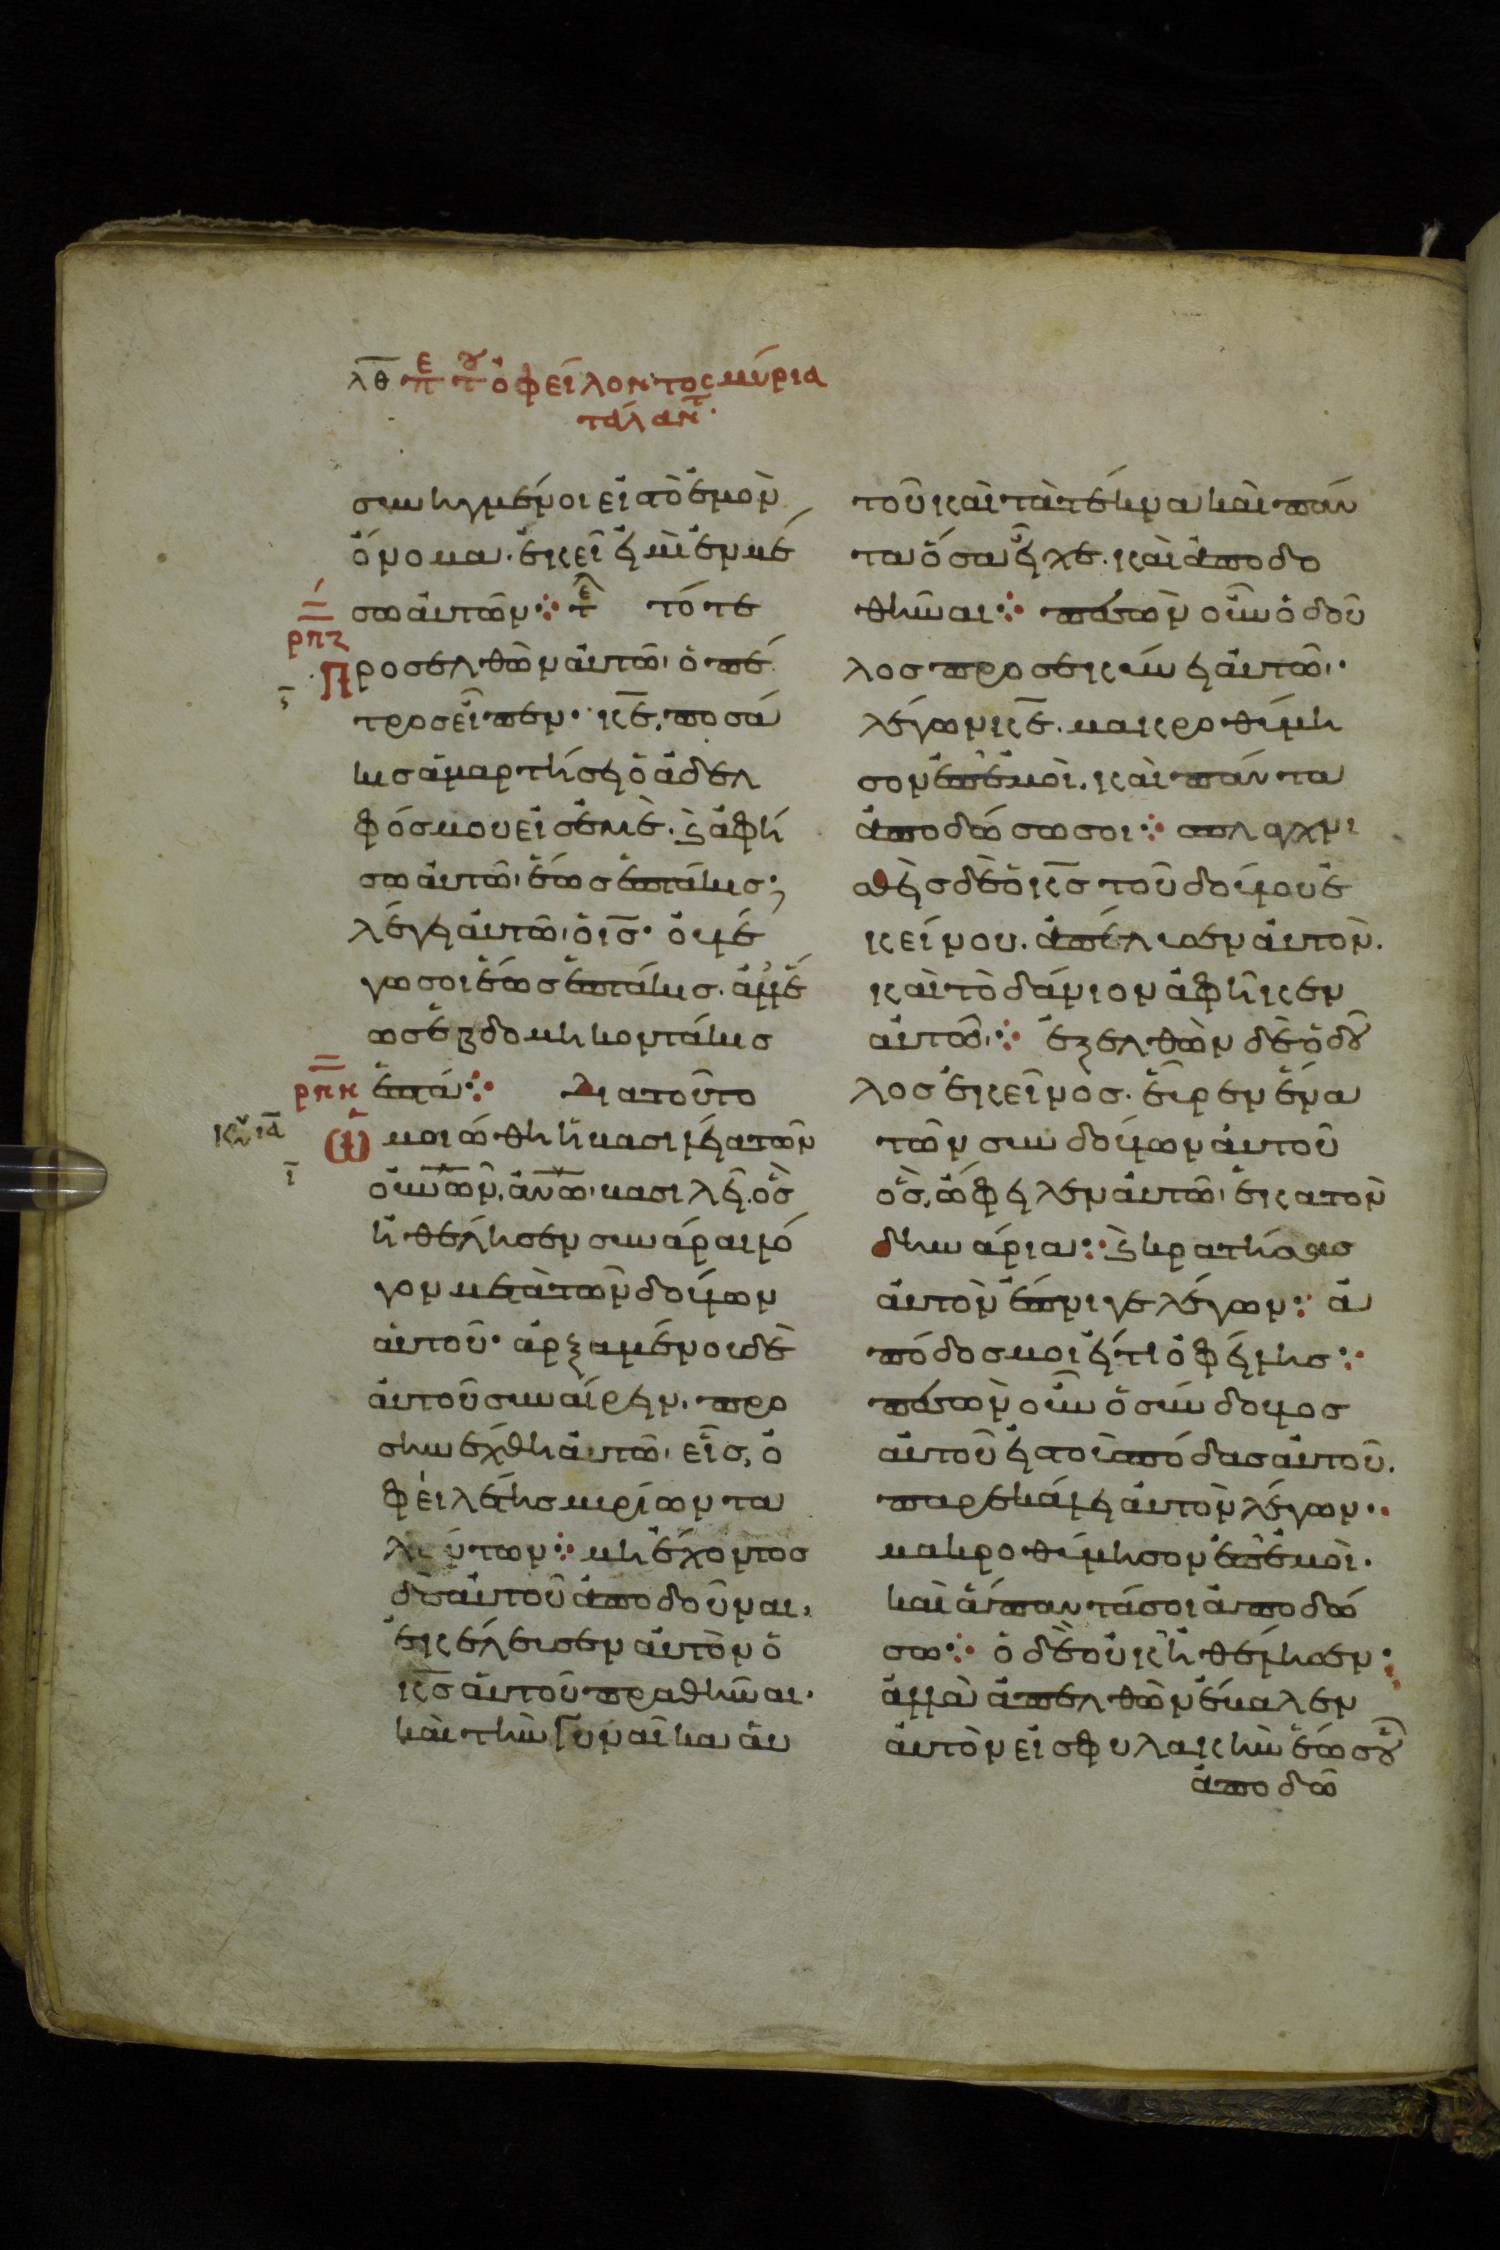 λθ πε του ὀφείλοντος μύρια
τάλαντ
συνηγμένοι εἰς τὸ ἐμὸν
ὄνομα· ἐκεῖ εἰμὶ ἐν μέ
σω αὐτῶν ⁘ τελ τότε
ρπζ
Προσελθὼν αὐτῶ ὁ πέ
τρος εἶπεν· κε, ποσά
κις ἁμαρτήσει ὁ ἀδελ
φός μου εἰς ἐμὲ· ϗ ἀφή
σω αὐτῶ· ἕως ἑπτάκις;
λέγει αὐτῶ ὁ ις· οὐ λέ
γω σοι ἕως ἑπτάκις· ἀλλ' ἕ
ως ἑβδομηκοντάκις
ρπη ἑπτά ⁘ Διατοῦτο
κυ ια
ὡμοιώθη ἡ βασιλεία τῶν
ι
οὐνῶν, ἀνω βασιλεῖ· ὃς
ἠθέλησεν συνάραι λό
γον μετὰ τῶν δούλων
αὐτοῦ· ἀρξαμένου δὲ
αὐτοῦ συναίρειν· προ
σηνέχθη αὐτῶ εἷς, ὀ
φειλέτης μυρίων τα
λάντων ⁘ μὴ ἔχοντος
δὲ αὐτοῦ ἀποδοῦναι,
ἐκέλευσεν αὐτὸν ὁ
κς αὐτοῦ πραθῆναι·
καὶ τὴν γυναῖκα αὐ
τοῦ καὶ τὰ τέκνα καὶ πάν
τα ὅσα εἶχε· καὶ ἀποδο
θῆναι ⁘ πεσὼν οὖν ὁ δοῦ
λος προσεκύνει αὐτῶ·
λέγων κε· μακροθύμη
σον ἐπ' ἐμοὶ, καὶ πάντα
ἀποδώσω σοι ⁘ σπλαγχνι
σθεὶς δὲ ὁ κς τοῦ δούλου ἐ
κείνου· ἀπέλυσεν αὐτὸν·
καὶ τὸ δάνιον ἀφῆκεν
αὐτῶ ⁘ ἐξελθὼν δὲ ὁ δοῦ
λος ἐκεῖνος· εὗρεν ἕνα
τῶν συνδούλων αὐτοῦ
ὃς, ὤφειλεν αὐτῶ ἑκατὸν
δηνάρια ⁘ ϗ κρατήσας
αὐτὸν ἔπνιγε λέγων ⁘ ἀ
πόδος μοι εἴ τι ὀφείλης ⁘
πεσὼν οὖν ὁ σύνδουλος
αὐτοῦ εἰς τοὺς πόδας αὐτοῦ·
παρεκάλει αὐτὸν λέγων ··
μακροθύμησον ἐπ' ἐμοὶ·
καὶ ἅπαντά σοι ἀποδώ
σω ⁘ ὁ δὲ οὐκ ἤθελησεν ⁘
ἀλλὰ ἀπελθὼν ἔβαλεν
αὐτὸν εἰς φυλακὴν ἕως οὗ
ἀποδῶ